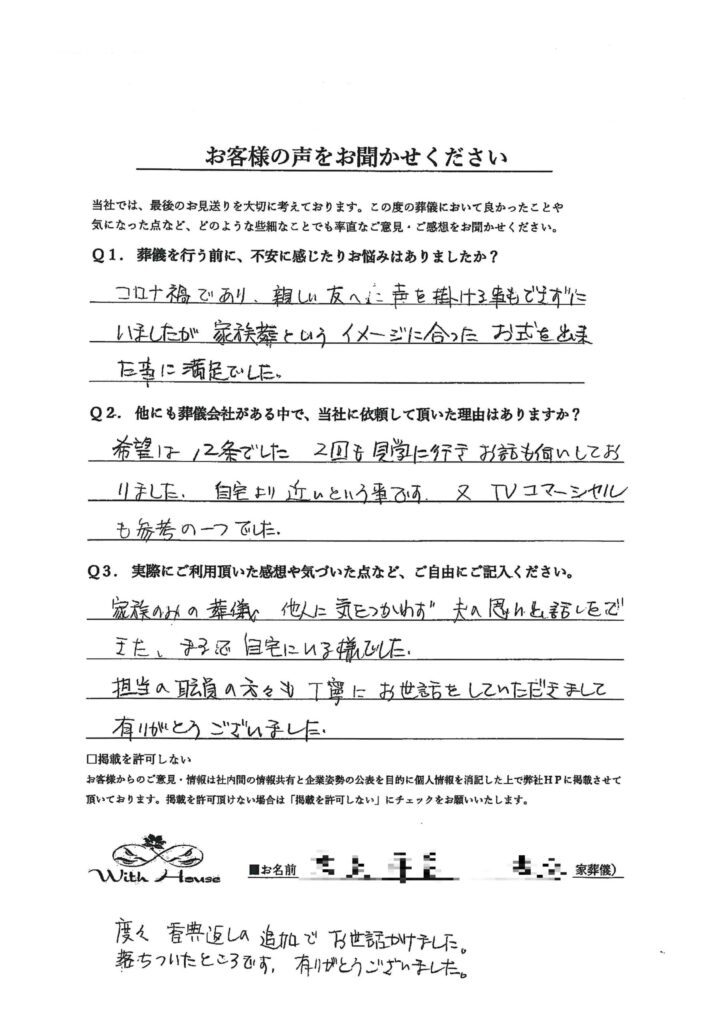 お客様の声をお聞かせください
当社では、最後のお見送りを大切に考えております。この度の葬儀において良かったことや
気になった点など、どのような些細なことでも率直なご意見・ご感想をお聞かせください。
Q1. 葬儀を行う前に、不安に感じたりお悩みはありましたか？
コロナ禍であり、親しい友人に声を掛ける事もできずに
いましたが 家族葬という イメージに合った お式を出来
た事に満足でした。
Q2. 他にも葬儀会社がある中で、当社に依頼して頂いた理由はありますか？
希望は 12条でした 2回も見学に行き お話も伺いしてお
りました. 自宅より近いという事です. 又 TVコマーシャル
も参考の一つでした.
Q3. 実際にご利用頂いた感想や気づいた点など、ご自由にご記入ください。
家族のみの葬儀 他人に気をつかわず 夫の思い出話しもで
きた、まるで自宅にいる様でした.
担当の職員の方々も 丁寧に お世話をしていただきまして
有りがとうございました.
□掲載を許可しない
お客様からのご意見・情報は社内間の情報共有と企業姿勢の公表を目的に個人情報を消記した上で弊社HPに掲載させて
頂いております。掲載を許可頂けない場合は「掲載を許可しない」にチェックをお願いいたします。
With House
■お名前 家葬儀）
度々 香典返しの追加で お世話かけました。
落ちついたところです. 有りがとうございました。